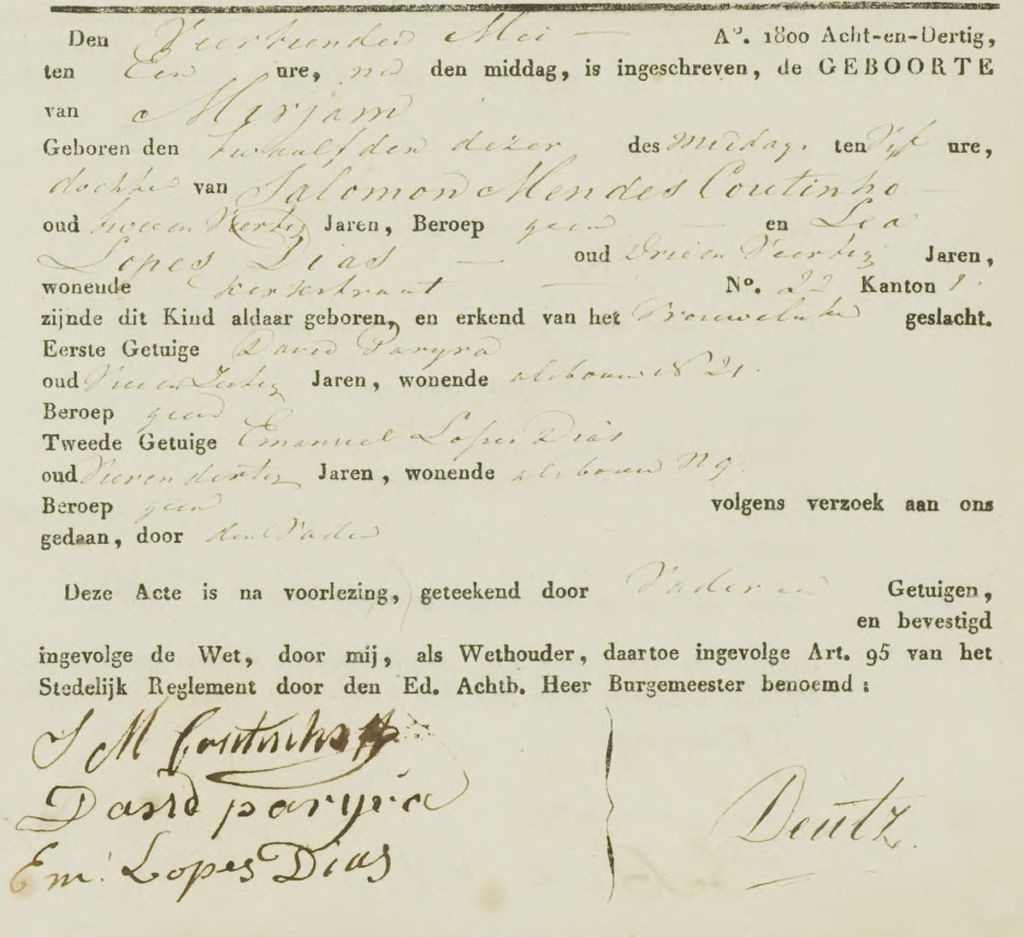 Den Veertienden Mei A°. 1800 Acht-en-Dertig,
ten Een ure, na den middag, is ingeschreven, de GEBOORTE
van Mirjam
Geboren den twaalfden dezer des middags ten Vijf ure,
dochter van Salomon Mendes Coutinho
oud twee en Veertig Jaren, Beroep geen en Lea
Lopes Dias oud Drie en Veertig Jaren,
wonende Kerkstraat N°. 22 Kanton 1
zijnde dit Kind aldaar geboren, en erkend van het Vrouwelijke geslacht.
Eerste Getuige David Paryra
oud Jaren, wonende N 21
Beroep geen
Tweede Getuige Emanuel Lopes Dias
oud Vier en dertig Jaren, wonende N 9
Beroep geen volgens verzoek aan ons
gedaan, door den Vader
Deze Acte is na voorlezing, geteekend door Vader en Getuigen,
en bevestigd
ingevolge de Wet, door mij, als Wethouder, daartoe ingevolge Art. 95 van het
Stedelijk Reglement door den Ed. Achtb. Heer Burgemeester benoemd:
S M Coutinho
David paryra
Deutz
Em: Lopes Dias